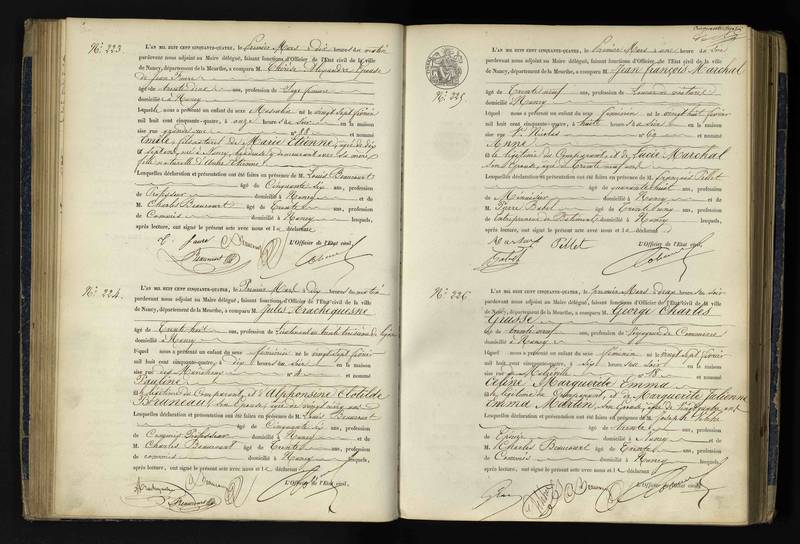 N° 223.
L'AN MIL HUIT CENT CINQUANTE-QUATRE, le Premier Mars à dix heures du matin
pardevant nous adjoint au Maire délégué, faisant fonctions d'Officier de l'Etat civil de la ville
de Nancy, département de la Meurthe, a comparu M. Thérèse Alexandre Epouse
de Jean Faure
âgé de trente deux ans, profession de Sage femme
domicilié à Nancy
Lequel nous a présenté un enfant du sexe Masculin né le vingt sept février
mil huit cent cinquante-quatre, à onze heures du soir en la maison
sise rue grande rue n° 88 et nommé
Emile, fils naturel de Marie Etienne, âgée de dix
sept ans, née à Nancy, demeurant avec sa mère
fille naturelle d' Etienne
Lesquelles déclaration et présentation ont été faites en présence de M. Louis Beaucourt
âgé de Cinquante six ans, profession
de Professeur domicilié à Nancy et de
M. Charles Beaucourt âgé de Trente ans, profession
de Commis domicilié à Nancy lesquels,
après lecture, ont signé le présent acte avec nous et la déclarante
Faure
L'Officier de l'Etat civil,
N° 224.
L'AN MIL HUIT CENT CINQUANTE-QUATRE, le Premier Mars à dix heures du matin
pardevant nous adjoint au Maire délégué, faisant fonctions d'Officier de l'Etat civil de la ville
de Nancy, département de la Meurthe, a comparu M. Jules Arachequesne
âgé de Trente huit ans, profession de Lieutenant au trente troisième de ligne
domicilié à Nancy
lequel nous a présenté un enfant du sexe féminin né le vingt sept février
mil huit cent cinquante-quatre, à dix heures du soir en la maison
sise rue des Maréchaux n° 4 et nommé
Pauline
fille légitime du Comparant, et d'Alphonsine Clotilde
Bruneau, son Epouse, âgée de vingt cinq ans
Lesquelles déclaration et présentation ont été faites en présence de M. Louis Beaucourt
âgé de Cinquante six ans, profession
de Commis Professeur domicilié à Nancy et de
M. Charles Beaucourt âgé de Trente ans, profession
de commis domicilié à Nancy lesquels,
après lecture, ont signé le présent acte avec nous et le déclarant
L'Officier de l'Etat civil,
N° 225.
L'AN MIL HUIT CENT CINQUANTE-QUATRE, le Premier Mars à une heure du soir
pardevant nous adjoint au Maire délégué, faisant fonctions d'Officier de l'Etat civil de la ville
de Nancy, département de la Meurthe, a comparu M. Jean François Marchal
âgé de Trente neuf ans, profession de
domicilié à Nancy
lequel nous a présenté un enfant du sexe féminin né le vingt huit février
mil huit cent cinquante-quatre, à huit heures du soir en la maison
sise rue St. Nicolas n° 62 et nommé
Anne
fille légitime du Comparant, et de Lucie Marchal
son Epouse, âgée de Trente ans
Lesquelles déclaration et présentation ont été faites en présence de M. François Pillet
âgé de quarante huit ans, profession
de Menuisier domicilié à Nancy et de
M. Pierre âgé de Trente cinq ans, profession
de Entrepreneur de Bâtiments domicilié à Nancy lesquels,
après lecture, ont signé le présent acte avec nous et le déclarant
Marchal Pillet
L'Officier de l'Etat civil,
N° 226
L'AN MIL HUIT CENT CINQUANTE-QUATRE, le premier Mars à deux heures du soir
pardevant nous adjoint au Maire délégué, faisant fonctions d'Officier de l'Etat civil de la ville
de Nancy, département de la Meurthe, a comparu M. George Charles
Grasse
âgé de trente neuf ans, profession de Voyageur de Commerce
domicilié à Nancy
lequel nous a présenté un enfant du sexe féminin né le vingt sept février
mil huit cent cinquante-quatre, à sept heures du soir en la maison
sise rue n° 18 et nommé
Céline Marguerite Emma
fille légitime du Comparant, et de Marguerite Julienne
Emma Martin, son Epouse, âgée de vingt quatre ans
Lesquelles déclaration et présentation ont été faites en présence de M. Joseph
âgé de Trente ans, profession
de domicilié à Nancy et de
M. Charles Beaucourt âgé de Trente ans, profession
de Commis domicilié à Nancy lesquels,
après lecture, ont signé le présent acte avec nous et le déclarant
L'Officier de l'Etat civil,